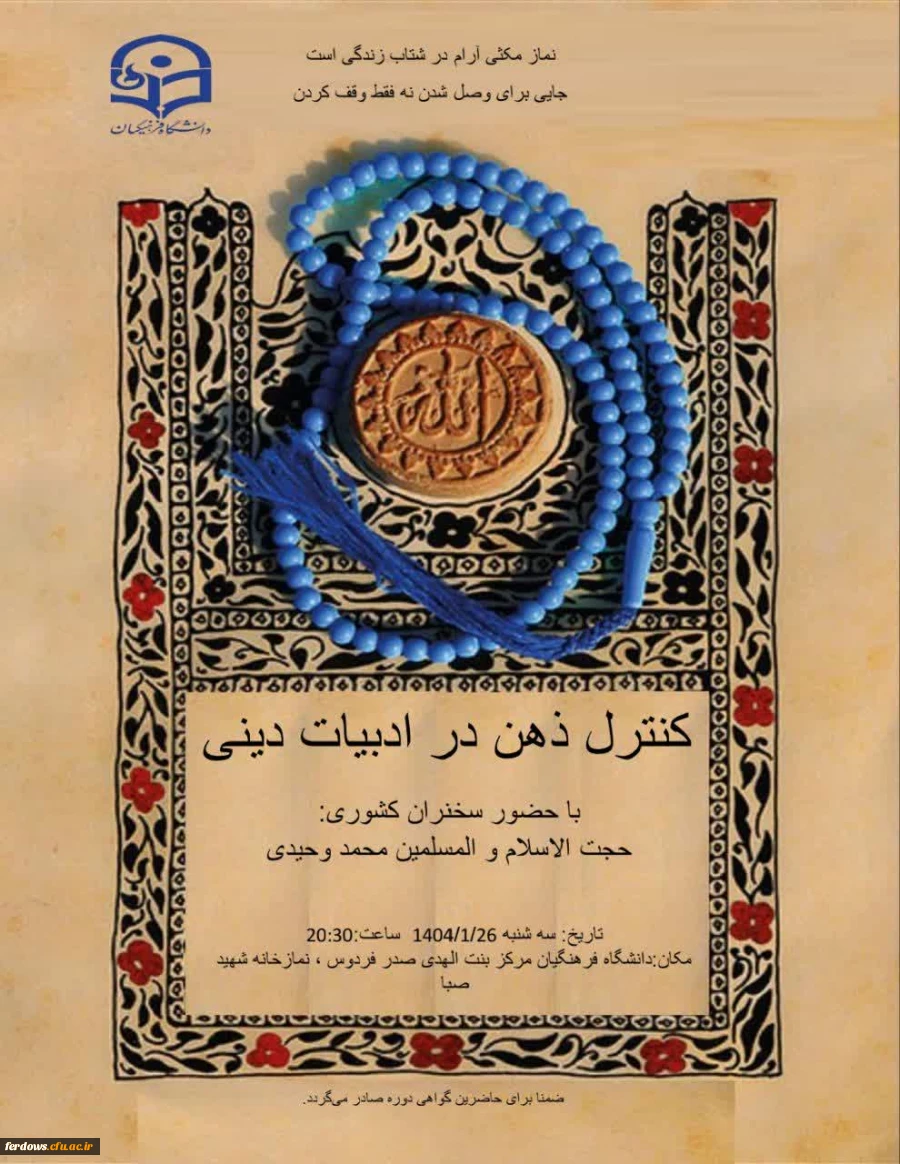 نماز مکثی آرام در شتاب زندگی است
جایی برای وصل شدن نه فقط وقف کردن
دانشگاه فرهنگیان
الله
کنترل ذهن در ادبیات دینی
با حضور سخنران کشوری:
حجت الاسلام و المسلمین محمد وحیدی
تاریخ: سه شنبه 1404/1/26 ساعت:20:30
مکان:دانشگاه فرهنگیان مرکز بنت الهدی صدر فردوس ، نمازخانه شهید
صبا
ضمنا برای حاضرین گواهی دوره صادر می‌گردد.
ferdows.cfu.ac.ir